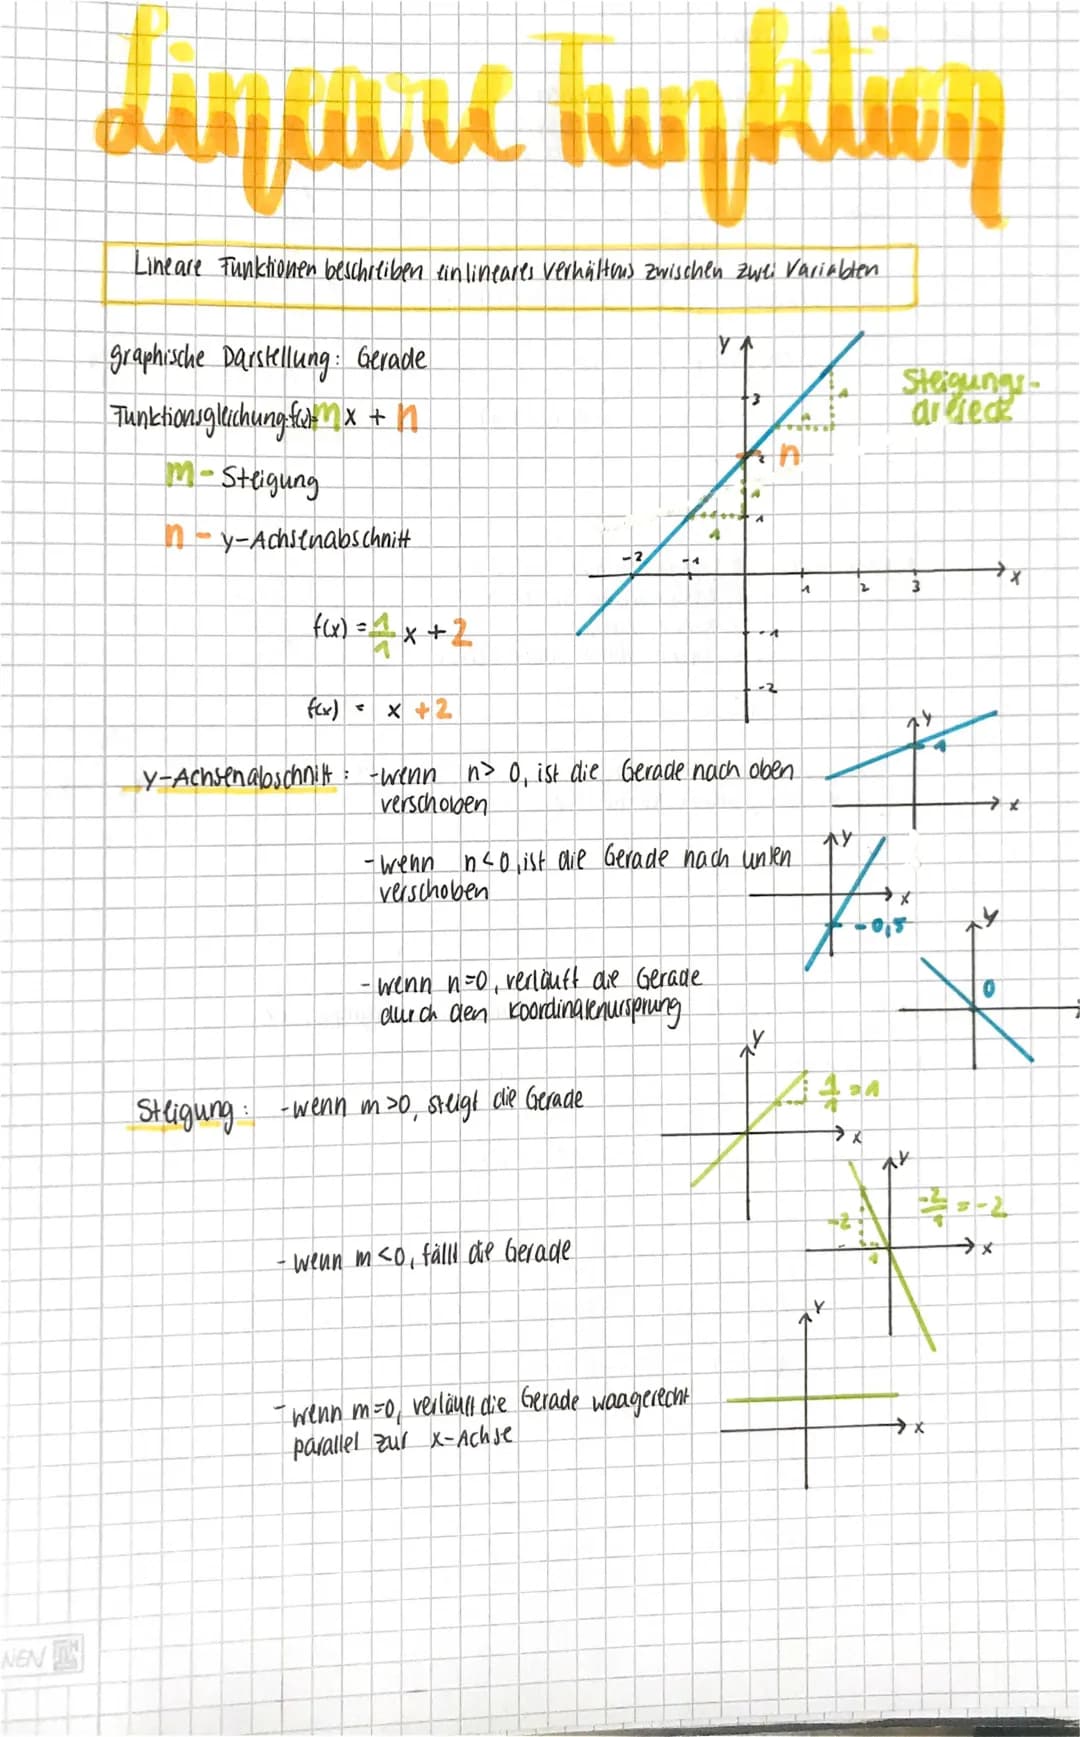 Lineare Funktion
Lineare Funktionen beschreiben ein lineares Verhältnis zwischen zwei Variablen
graphische Darstellung: Gerade
Funktionsgleichung: f(x)=mx + n
m - Steigung
n - y-Achsenabschnitt
f(x) = 1/1 x + 2
f(x) = x + 2
y
3
2
n
1
1
1
1
1
-2
-1
1
2
3
x
-1
-2
Steigungs-
dreieck
y-Achsenabschnitt: -wenn n> 0, ist die Gerade nach oben
verschoben
y
1
x
-wenn n<0, ist die Gerade nach unten
verschoben
y
x
-0,5
-wenn n=0, verläuft die Gerade
durch den Koordinatenursprung
y
0
Steigung: -wenn m>0, steigt die Gerade
y
1/1 = 1
x
-wenn m<0, fällt die Gerade
y
-2
1
-2/1 = -2
x
-wenn m=0, verläuft die Gerade waagerecht
parallel zur x-Achse
y
x
NEN